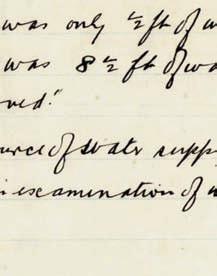 was only ½ ft of
was 8½ ft of wa
oved."
urce of water supp
n examination of